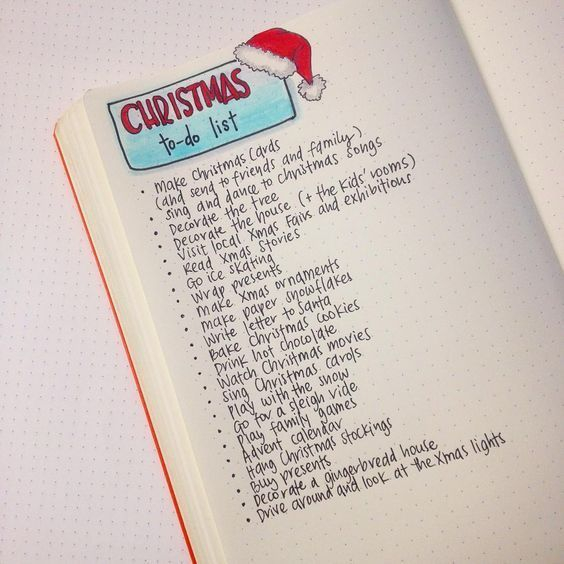 CHRISTMAS
to-do list
• Make Christmas Cards
(and send to friends and family)
• Sing and dance to Christmas songs
• Decorate the tree
• Decorate the house (+ the kids' rooms)
• Visit local Xmas Fairs and exhibitions
• Read Xmas Stories
• Go ice skating
• Wrap presents
• Make Xmas ornaments
• Make paper snowflakes
• Write letter to Santa
• Bake Christmas cookies
• Drink hot chocolate
• Watch Christmas movies
• Sing Christmas carols
• Play with the snow
• Go for a sleigh ride
• Play family games
• Advent calendar
• Hang Christmas stockings
• Buy presents
• Decorate a gingerbread house
• Drive around and look at the Xmas lights